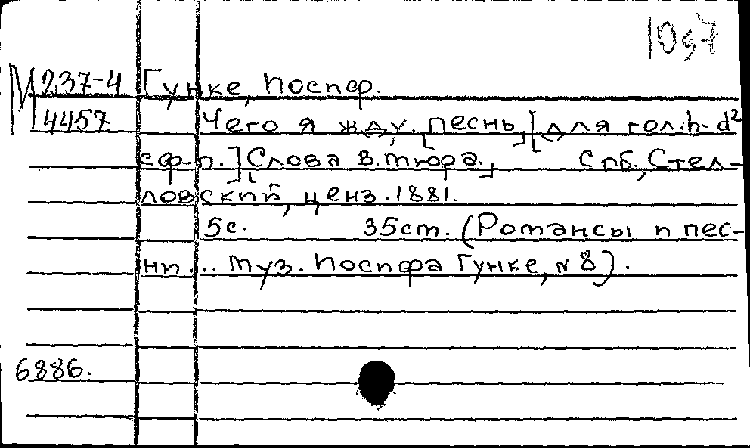 1097
М 237-4 Гунке, Иосиф.
4457 Чего я жду. [песнь,] [для гол. h-d²
с ф-п.] [Слова В. Тюра.] Спб., Стел-
ловский, ценз. 1881.
5с. 35см. (Романсы и пес-
ни... муз. Иосифа Гунке, № 8).
6886.